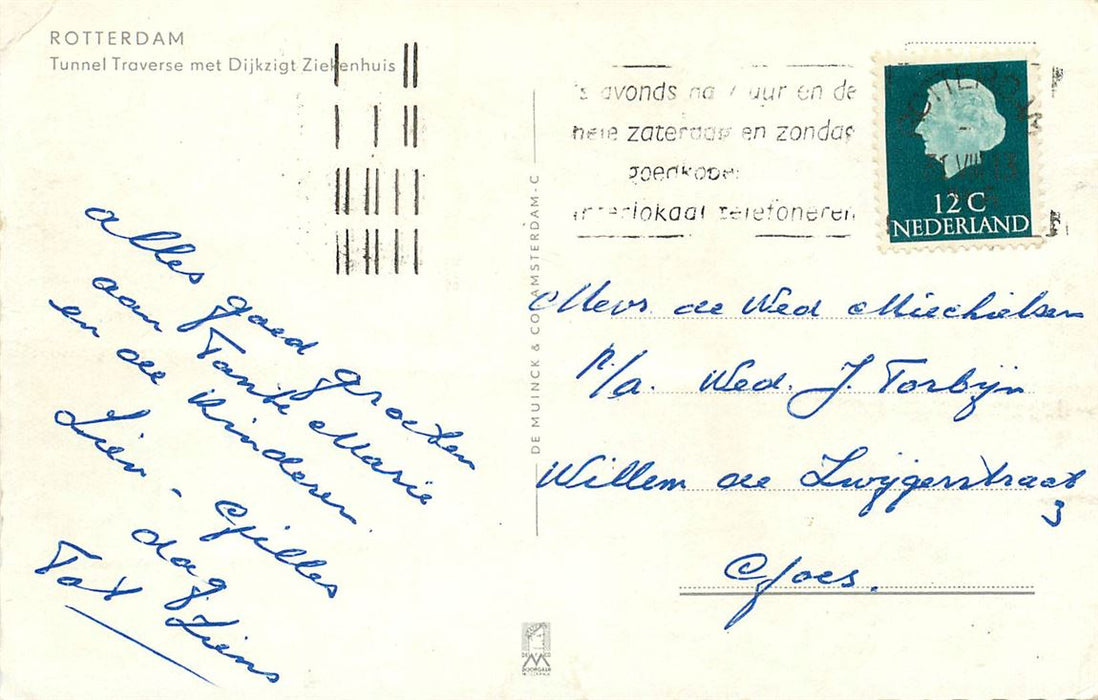 ROTTERDAM
Tunnel Traverse met Dijkzigt Ziekenhuis
's avonds na 7 uur en de
hele zaterdag en zondag
goedkoper
interlokaal telefoneren
ROTTERDAM
12 C
NEDERLAND
DE MUINCK & CO. AMSTERDAM-C
alles goed groeten
aan Tante Marie
en de kinderen
Lien - Gilles
dag
Tot Ziens
Mevr de Wed Miechielsen
p/a. Wed. J. Torbijn
Willem de Zwijgerstraat
3
Goes.